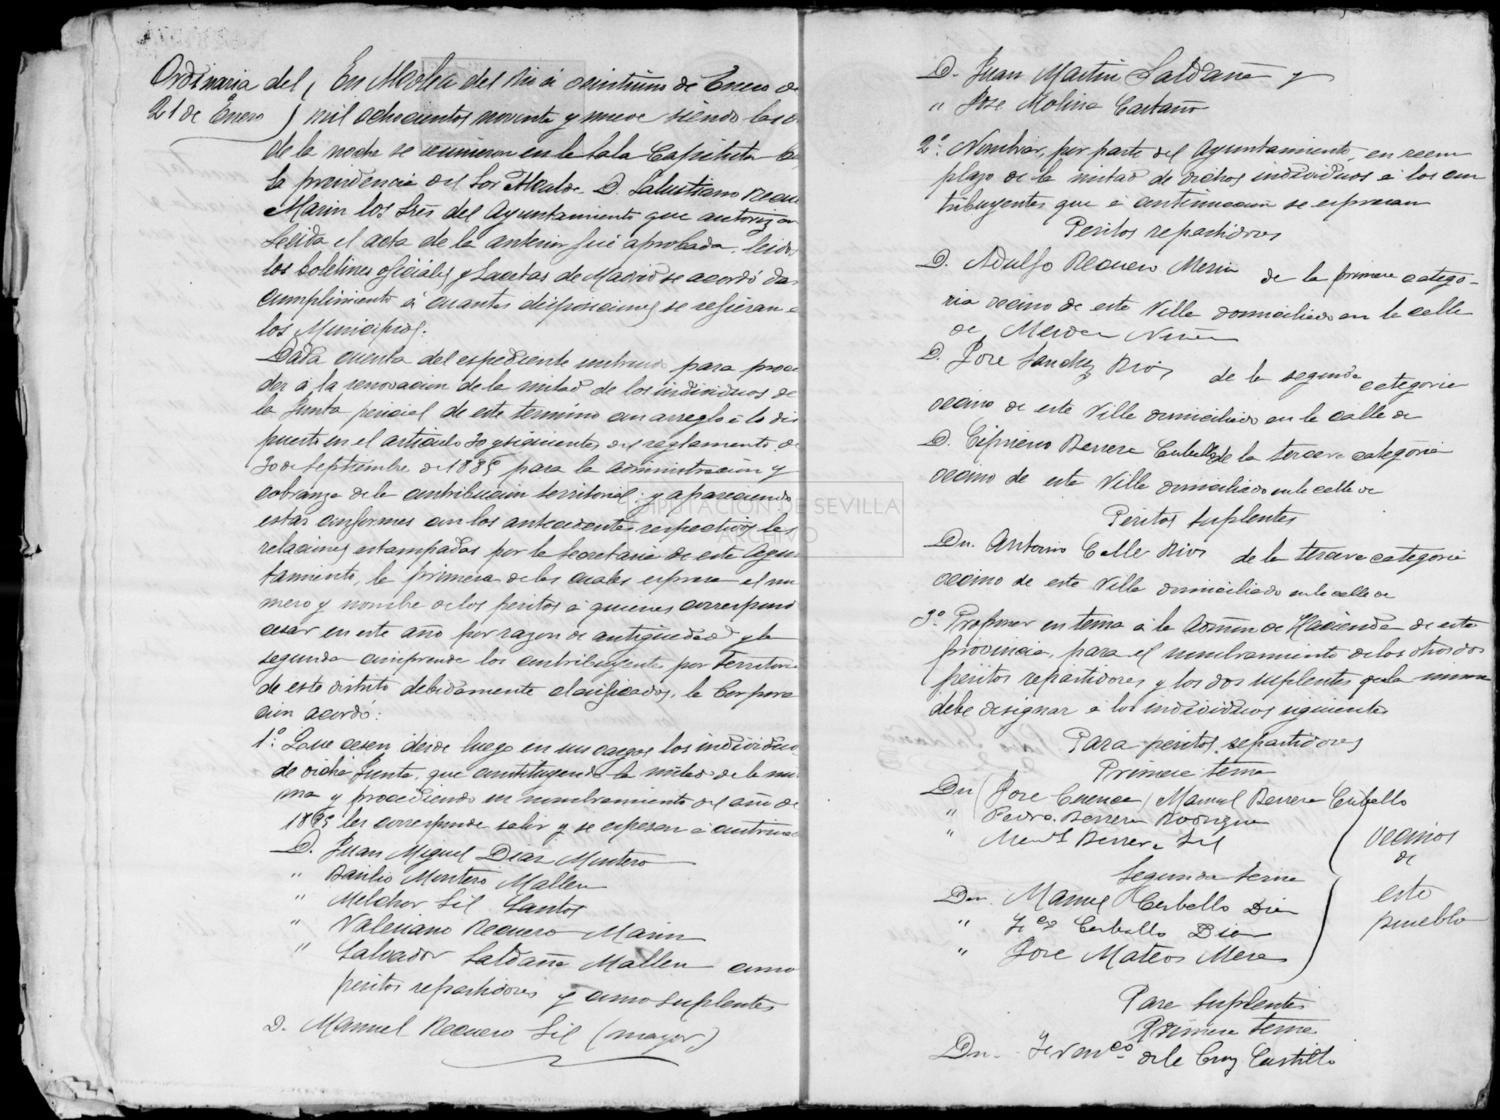 Ordinaria del
21 de Enero
En Alcolea del Rio á veintiuno de Enero de
mil ochocientos noventa y nueve siendo las
de la noche se reunieron en la Sala Capitular
la presidencia del Sor Alcalde D. Salustiano Reque
Marin los Sres del Ayuntamiento que autorizan
Leida el acta de la anterior fué aprobada, leidos
los boletines oficiales y Gacetas de Madrid se acordó dar
cumplimiento á cuantas disposiciones se refieran á
los Municipios.
Dada cuenta del espediente instruido para proce
der á la renovacion de la mitad de los individuos de
la Junta pericial de este término con arreglo á lo dis
puesto en el articulo 30 y siguientes del reglamento de
30 de Septiembre de 1885 para la administracion y
cobranza de la contribucion territorial; y apareciendo
estar conformes con los antecedentes respectivos las
relaciones estampadas por la Secretaria de este Ayun
tamiento, la primera de las cuales espresa el nu
mero y nombre de los peritos á quienes corresponde
cesar en este año por razon de antigüedad y la
segunda comprende los contribuyentes por Territorial
de este distrito debidamente clasificados, la Corpora
cion acordó:
1º Que cesen desde luego en sus cargos los individuos
de dicha Junta, que constituyendo la mitad de la mis
ma y procediendo su nombramiento del año de
1895 les corresponde salir y se espresan á continua
D. Juan Miguel Diaz Montero
" Basilio Montero Mallen
" Melchor Gil Santos
" Valeriano Requero Marin
" Salvador Saldaña Mallen como
peritos repartidores y como suplentes
D. Manuel Requero Gil (mayor)
D. Juan Martin Saldaña y
" Jose Molina Castaño
2º Nombrar, por parte del Ayuntamiento, en reem
plazo de la mitad de dichos individuos á los con
tribuyentes que á continuacion se espresan
Peritos repartidores
D. Adolfo Requero Marin de la primera catego-
ria vecino de esta Villa domiciliado en la calle
de
D. Jose Sanchez Rios de la segunda categoria
vecino de esta Villa domiciliado en la calle de
D. Cipriano Barrera Carballo de la tercera categoria
vecino de esta Villa domiciliado en la calle de
Peritos suplentes
Dn. Antonio Calle Rios de la tercera categoria
vecino de esta Villa domiciliado en la calle de
3º Proponer en terna á la Admón de Hacienda de esta
provincia, para el nombramiento de los otros dos
peritos repartidores y los dos suplentes que la misma
debe designar á los individuos siguientes
Para peritos repartidores
Primera terna
Dn Jose Cuenca Manuel Barrera Carballo
" Pedro Barrera Rodriguez
" Manl Barrera Gil
Segunda terna
Dn. Manuel Carballo Diaz
" Fco Carballo Diaz
" Jose Mateos Mera
vecinos
de
este
pueblo
Para suplentes
Primera terna
Dn. Franco de la Cruz Castillo
DIPUTACIÓN DE SEVILLA
ARCHIVO